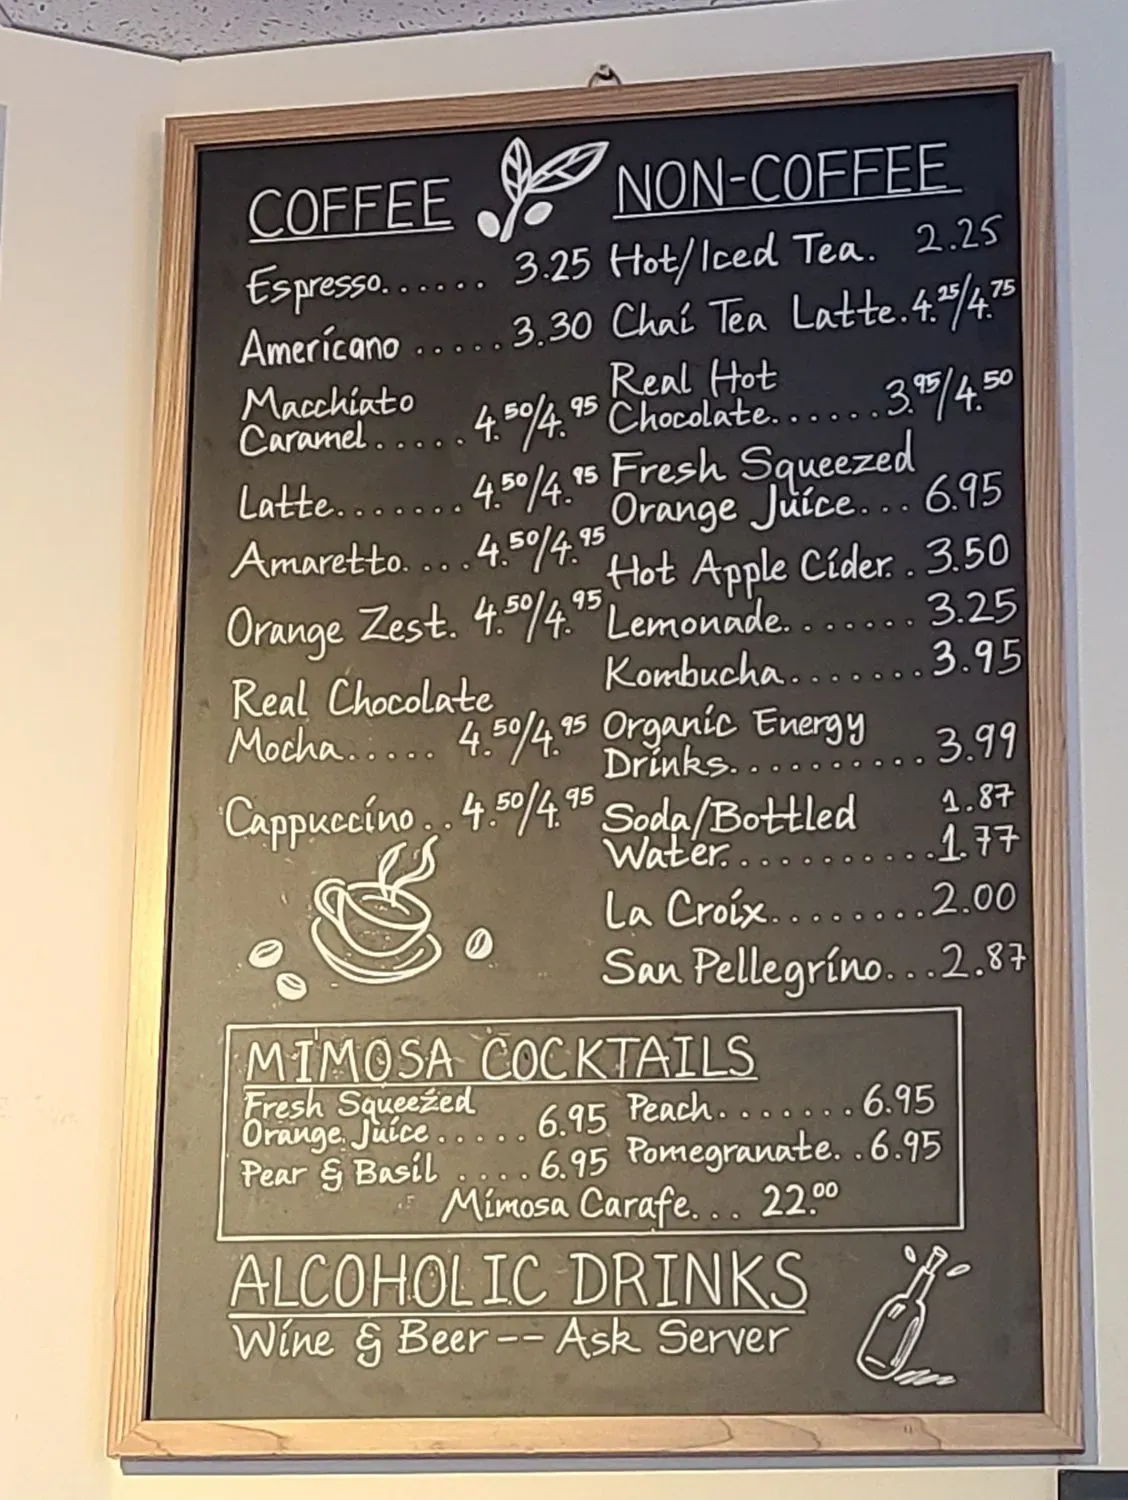 COFFEE
Espresso...... 3.25
Americano ..... 3.30
Macchiato
Caramel..... 4.50/4.95
Latte....... 4.50/4.95
Amaretto.... 4.50/4.95
Orange Zest. 4.50/4.95
Real Chocolate
Mocha..... 4.50/4.95
Cappuccino.. 4.50/4.95
NON-COFFEE
Hot/Iced Tea. 2.25
Chai Tea Latte.4.25/4.75
Real Hot
Chocolate......3.95/4.50
Fresh Squeezed
Orange Juice... 6.95
Hot Apple Cider.. 3.50
Lemonade....... 3.25
Kombucha.......3.95
Organic Energy
Drinks.......... 3.99
Soda/Bottled 1.87
Water...........1.77
La Croix........2.00
San Pellegrino...2.87
MIMOSA COCKTAILS
Fresh Squeezed
Orange Juice..... 6.95
Pear & Basil .... 6.95
Peach.......6.95
Pomegranate..6.95
Mimosa Carafe... 22.00
ALCOHOLIC DRINKS
Wine & Beer -- Ask Server